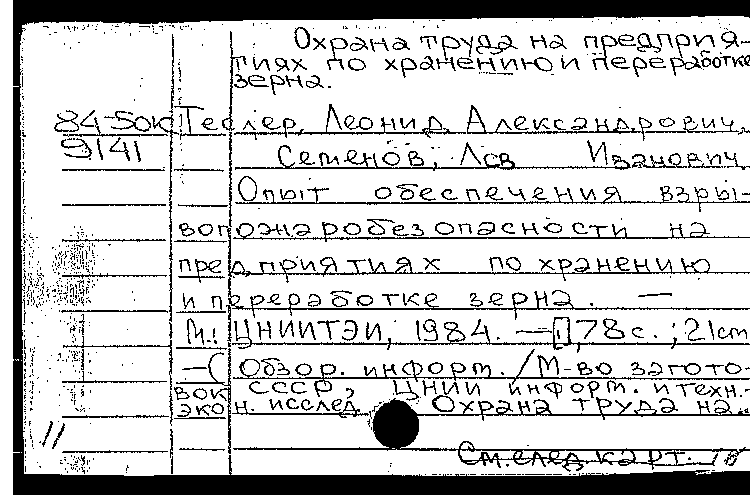 Охрана труда на предприя-
тиях по хранению и переработке
зерна.
84-5ок Теслер, Леонид Александрович,
9141 Семенов, Лев Иванович
Опыт обеспечения взры-
вопожаробезопасности на
предприятиях по хранению
и переработке зерна. —
М.: ЦНИИТЭИ, 1984. — 78 с.; 21 cm
— (Обзор. информ. / М-во загото-
вок СССР, ЦНИИ информ. и техн.-
экон. исслед. Охрана труда на..
11 См. след. карт.